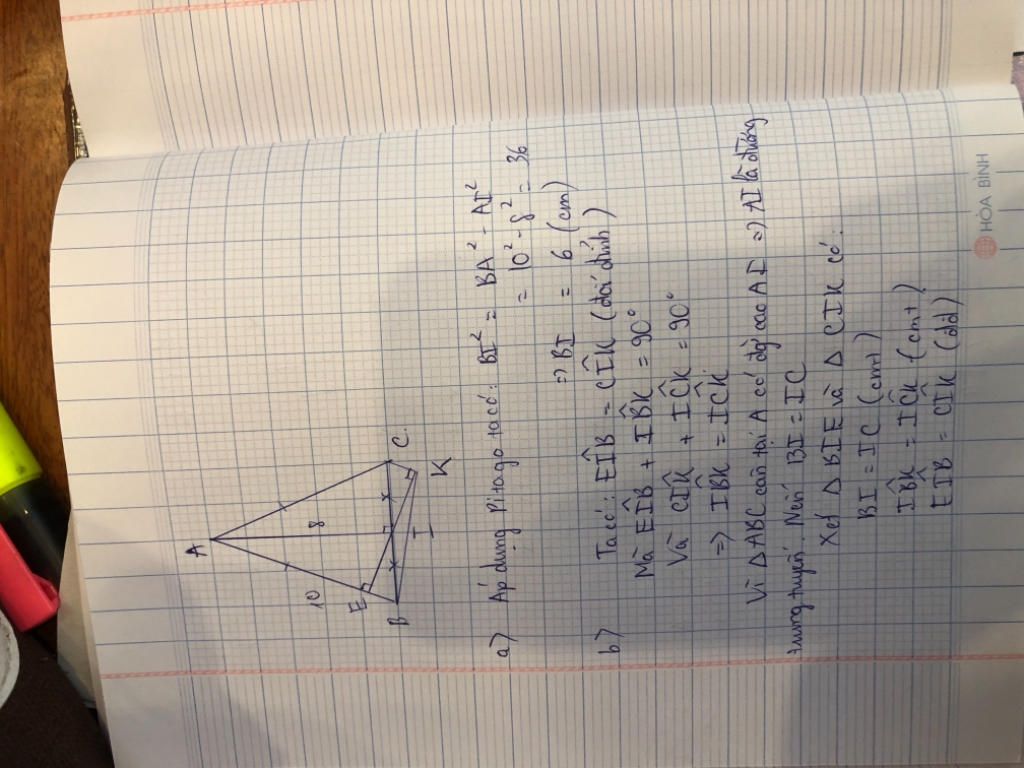 A
10
8
E
B
I
C
K
a) Áp dụng Pitago ta có: BI² = BA² - AI²
= 10² - 8² = 36
=> BI = 6 (cm)
b) Ta có: EÎB = CÎK (đối đỉnh)
Mà EÎB + IB̂K = 90°
Và CÎK + IĈK = 90°
=> IB̂K = IĈK
Vì Δ ABC cân tại A có đg cao AI => AI là đường
trung tuyến. Nên BI = IC
Xét Δ BIE và Δ CIK có:
BI = IC (cmt)
IB̂K = IĈK (cmt)
EÎB = CÎK (đđ)
HÒA BÌNH